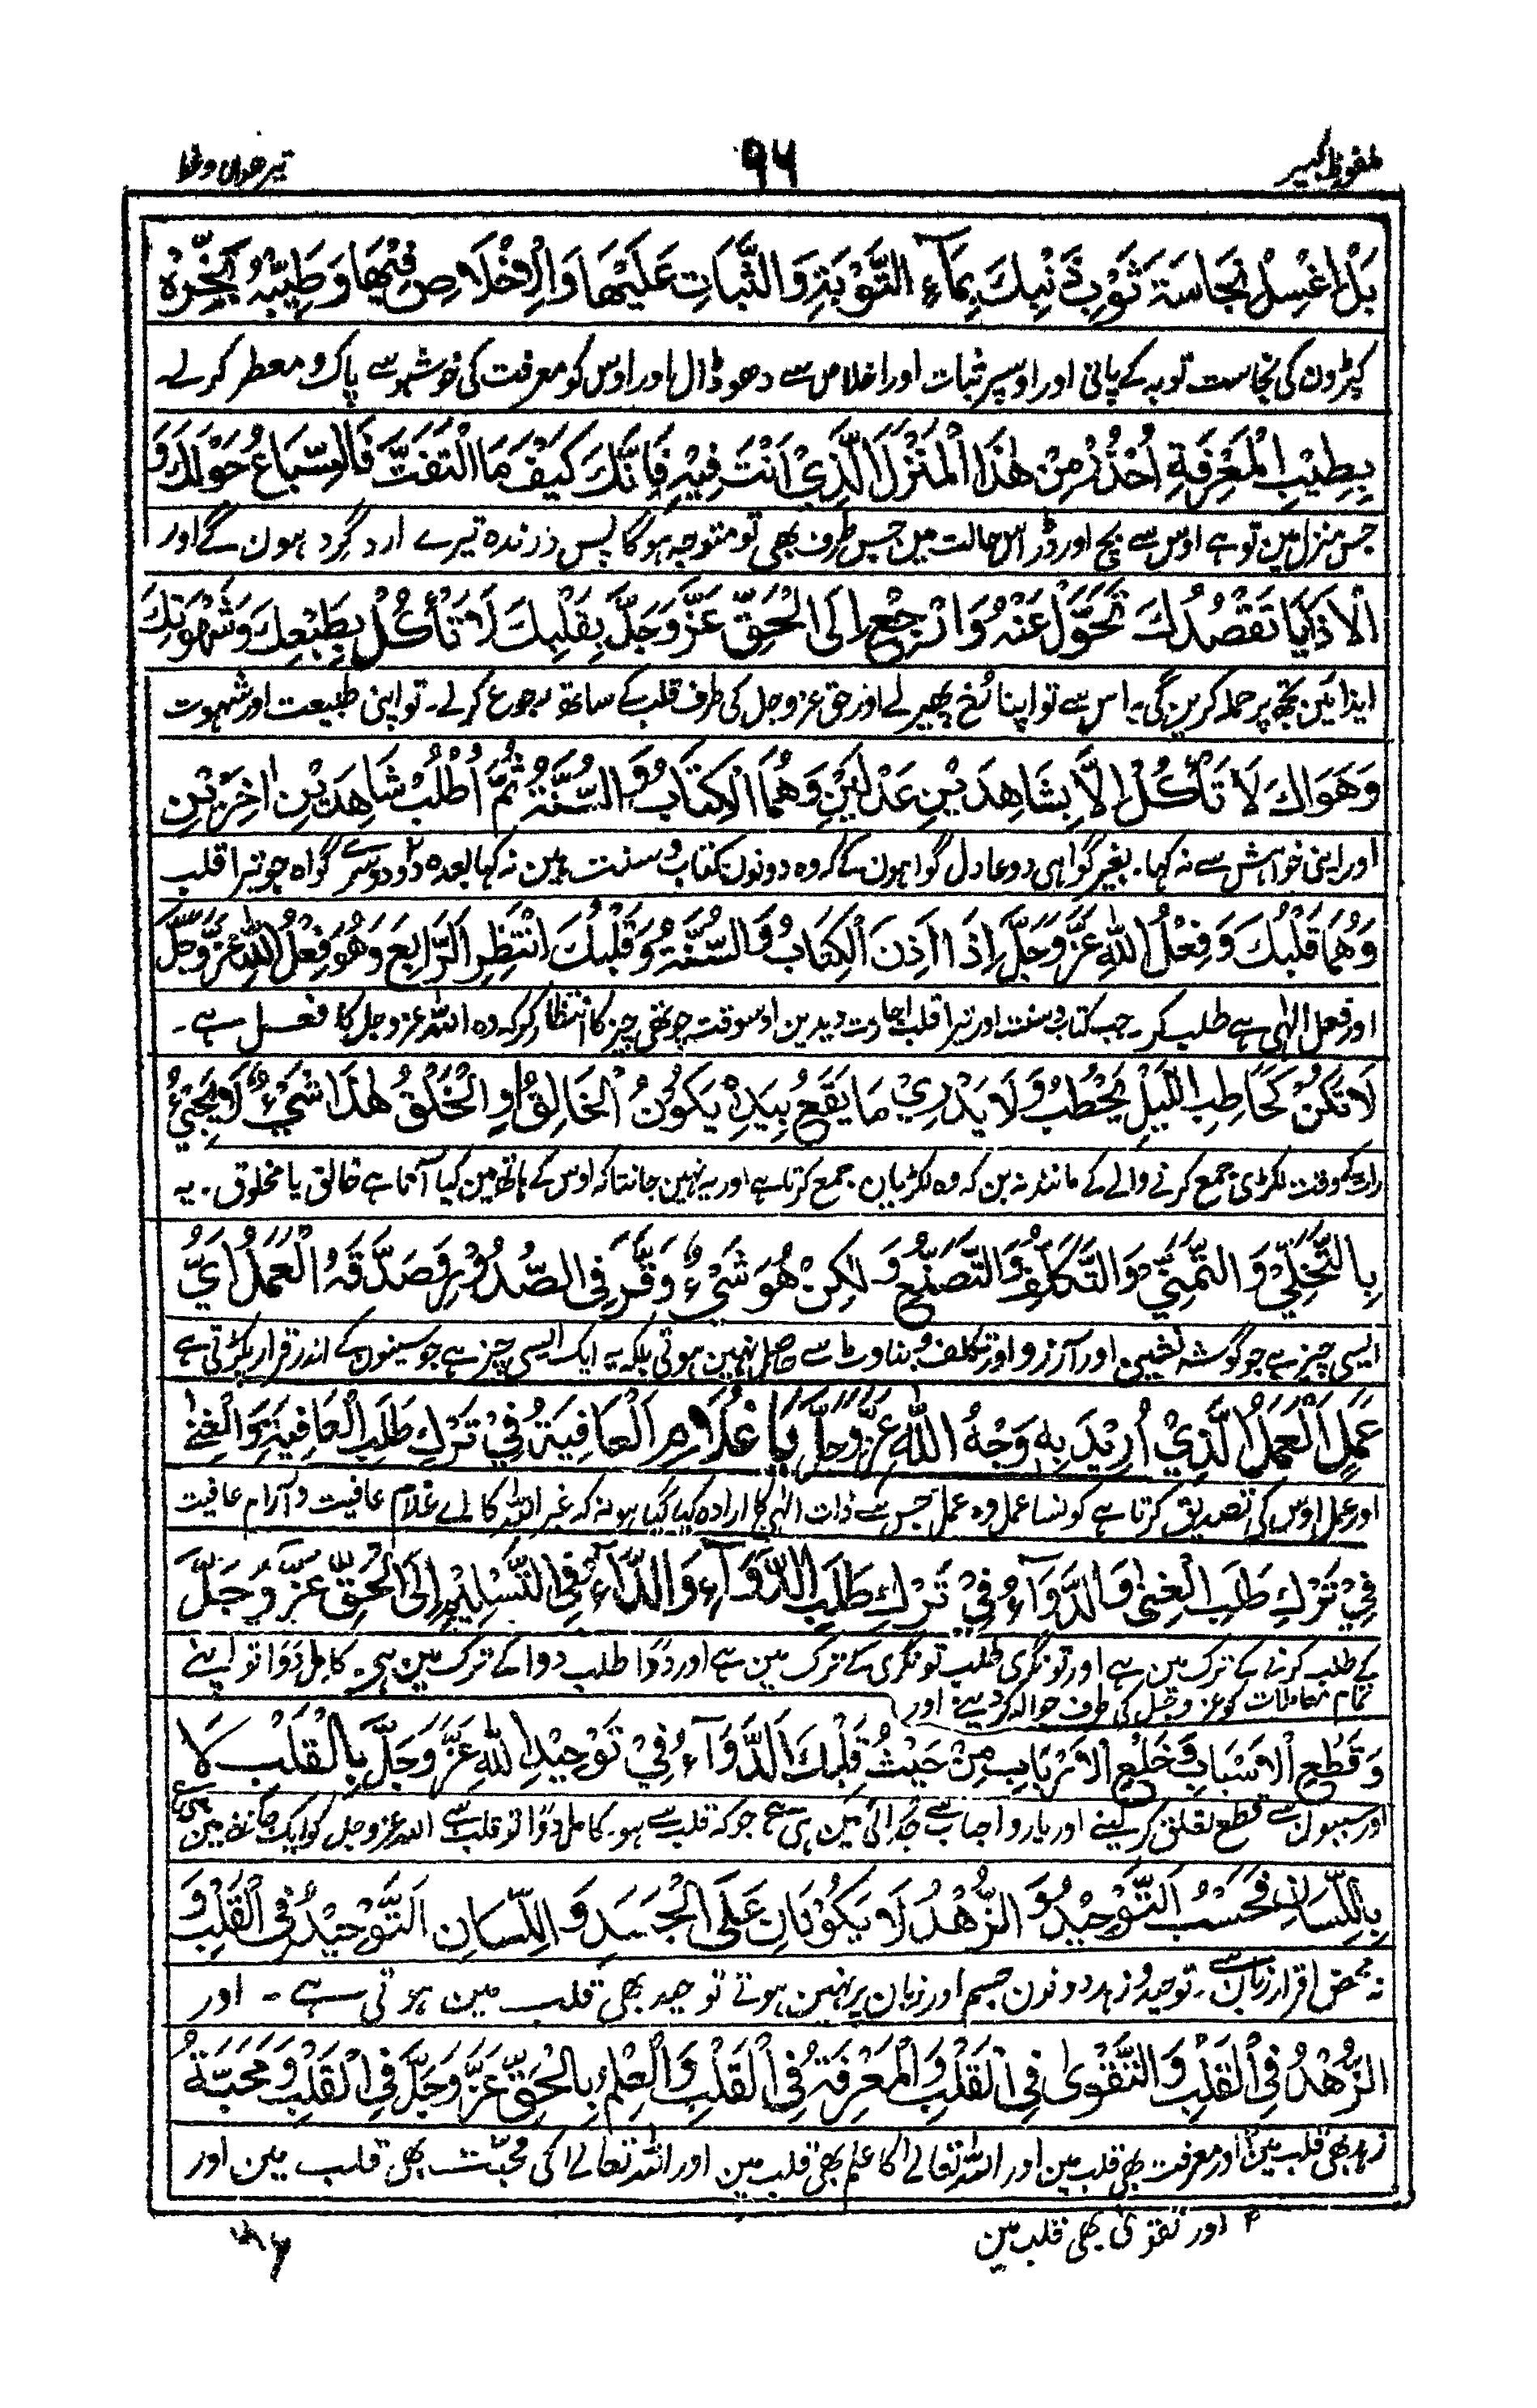 ملفوظ کبیر
۹۶
تیرھواں وعظ
بَلْ اغْسِلْ نَجَاسَةَ ثَوْبِ ذَنْبِكَ بِمَآءِ التَّوْبَةِ وَالثَّبَاتِ عَلَيْهَا وَالْاِخْلَاصِ فِيْهَا وَطَيِّبْهُ بَخِّرْهُ
کپڑون کی نجاست توبہ کے پانی اور اوسپر ثبات اور اخلاص سے دھو ڈال اور اوس کو معرفت کی خوشبو سے پاک و معطر کرلے۔
بِطِيْبِ الْمَعْرِفَةِ اُحْذُرْ مِنْ هٰذَا الْمَنْزَلِ الَّذِيْ اَنْتَ فِيْهِ فَاِنَّكَ كَيْفَ مَا الْتَفَتَّ فَالسِّبَاعُ حَوْلَكَ وَ
جس منزل مین تو ہے اوس سے بچ اور ڈر اس حالت مین جس طرف بھی تو متوجہ ہوگا پس درندہ تیرے ارد گرد ہون گے اور
الْاَذَايَا تَقْصُدُكَ تَحَوَّلْ عَنْهُ وَارْجِعْ اِلَى الْحَقِّ عَزَّ وَجَلَّ بِقَلْبِكَ لَا تَأْكُلْ بِطَبْعِكَ وَشَهْوَتِكَ
ایذائین تجھ پر حملہ کرین گی۔ اس سے تو اپنا رُخ پھیر لے اور حق عز وجل کی طرف قلب کے ساتھ رجوع کرلے۔ تو اپنی طبیعت اور شہوت
وَهَوَاكَ لَا تَأْكُلْ اِلَّا بِشَاهِدَيْنِ عَدْلَيْنِ وَهُمَا الْكِتَابُ وَالسُّنَّةُ ثُمَّ اُطْلُبْ شَاهِدَيْنِ اٰخَرَيْنِ
اور اپنی خواہش سے نہ کہا۔ بغیر گواہی دو عادل گواہون کے کہ وہ دونون کتاب و سنت ہین نہ کہا بعدہ دو دوسرے گواہ جو تیرا قلب
وَهُمَا قَلْبُكَ وَفِعْلُ اللّٰهِ عَزَّ وَجَلَّ اِذَا اَذِنَ الْكِتَابُ وَالسُّنَّةُ وَقَلْبُكَ انْتَظِرِ الرَّابِعَ وَهُوَ فِعْلُ اللّٰهِ عَزَّ وَجَلَّ
اور فعل الٰہی ہے طلب کر۔ جب کتاب و سنت اور تیرا قلب اجازت دیدین اوسوقت چوتھی چیز کا انتظار کر کہ وہ اللہ عز وجل کا فعل ہے۔
لَا تَكُنْ كَحَاطِبِ اللَّيْلِ يَحْطُبُ وَلَا يَدْرِيْ مَا يَقَعُ بِيَدِهٖ يَكُوْنُ الْخَالِقُ اَوِ الْخَلْقُ هٰذَا شَيْءٌ لَا يَجِيْءُ
رات کے وقت لکڑی جمع کرنے والے کے مانند نہ بن کہ وہ لکڑیاں جمع کرتا ہے اور یہ نہین جانتا کہ اوس کے ہاتھ مین کیا آتا ہے خالق یا مخلوق۔ یہ
بِالتَّخَلِّيْ وَالتَّمَنِّيْ وَالتَّكَلُّفِ وَالتَّصَنُّعِ وَلٰكِنْ هُوَ شَيْءٌ وَقَرَ فِى الصُّدُوْرِ وَصَدَّقَهُ الْعَمَلُ اَيُّ
ایسی چیز ہے جو گوشہ نشینی اور آرزو اور تکلف و بناوٹ سے حاصل نہین ہوتی بلکہ یہ ایک ایسی چیز ہے جو سینوں کے اندر قرار پکڑتی ہے
عَمَلٍ الْعَمَلُ الَّذِيْ اُرِيْدَ بِهٖ وَجْهُ اللّٰهِ عَزَّ وَجَلَّ يَا غُلَامِ الْعَافِيَةُ فِيْ تَرْكِ طَلَبِ الْعَافِيَةِ وَالْغِنٰى
اور عمل اوس کی تصدیق کرتا ہے کونسا عمل وہ عمل جس سے ذات الٰہی کا ارادہ کیا گیا ہو نہ کہ غیر اللہ کا اے غلام عافیت و آرام عافیت
فِيْ تَرْكِ طَلَبِ الْغِنٰى وَالدَّوَآءُ فِيْ تَرْكِ طَلَبِ الدَّوَآءِ وَالدَّآءُ فِى التَّسْلِيْمِ اِلَى الْحَقِّ عَزَّ وَجَلَّ
کے طلب کرنے کے ترک مین ہے اور تونگری طلب تونگری کے ترک مین ہے اور دوا طلب دوا کے ترک مین ہی۔ کامل دوا تو اپنے
تمام معاملات کو عز وجل کی طرف حوالہ کر دینے اور
وَقَطْعِ الْاَسْبَابِ وَخَلْعِ الْاَرْبَابِ مِنْ حَيْثُ قَلْبِكَ الدَّوَآءُ فِيْ تَوْحِيْدِ اللّٰهِ عَزَّ وَجَلَّ بِالْقَلْبِ لَا
اور سببون سے قطع تعلق کر لینے اور یار و احباب سے جدائی مین ہی ہے جو کہ قلب سے ہو۔ کامل دوا تو قلب سے اللہ عز وجل کو ایک جاننے مین ہے
بِاللِّسَانِ فَحَسْبُ التَّوْحِيْدُ وَالزُّهْدُ لَا يَكُوْنَانِ عَلَى الْجَسَدِ وَاللِّسَانِ التَّوْحِيْدُ فِى الْقَلْبِ وَ
نہ محض اقرار زبان سے۔ توحید و زہد دونون جسم اور زبان پر نہین ہوتے توحید بھی قلب مین ہوتی ہے۔ اور
الزُّهْدُ فِى الْقَلْبِ وَالتَّقْوٰى فِى الْقَلْبِ وَالْمَعْرِفَةُ فِى الْقَلْبِ وَالْعِلْمُ بِالْحَقِّ عَزَّ وَجَلَّ فِى الْقَلْبِ وَمَحَبَّةُ
زہد بھی قلب مین اور معرفت بھی قلب مین اور اللہ تعالےٰ کا علم بھی قلب مین اور اللہ تعالےٰ کی محبت بھی قلب مین اور
۳ اور تقوٰی بھی قلب مین